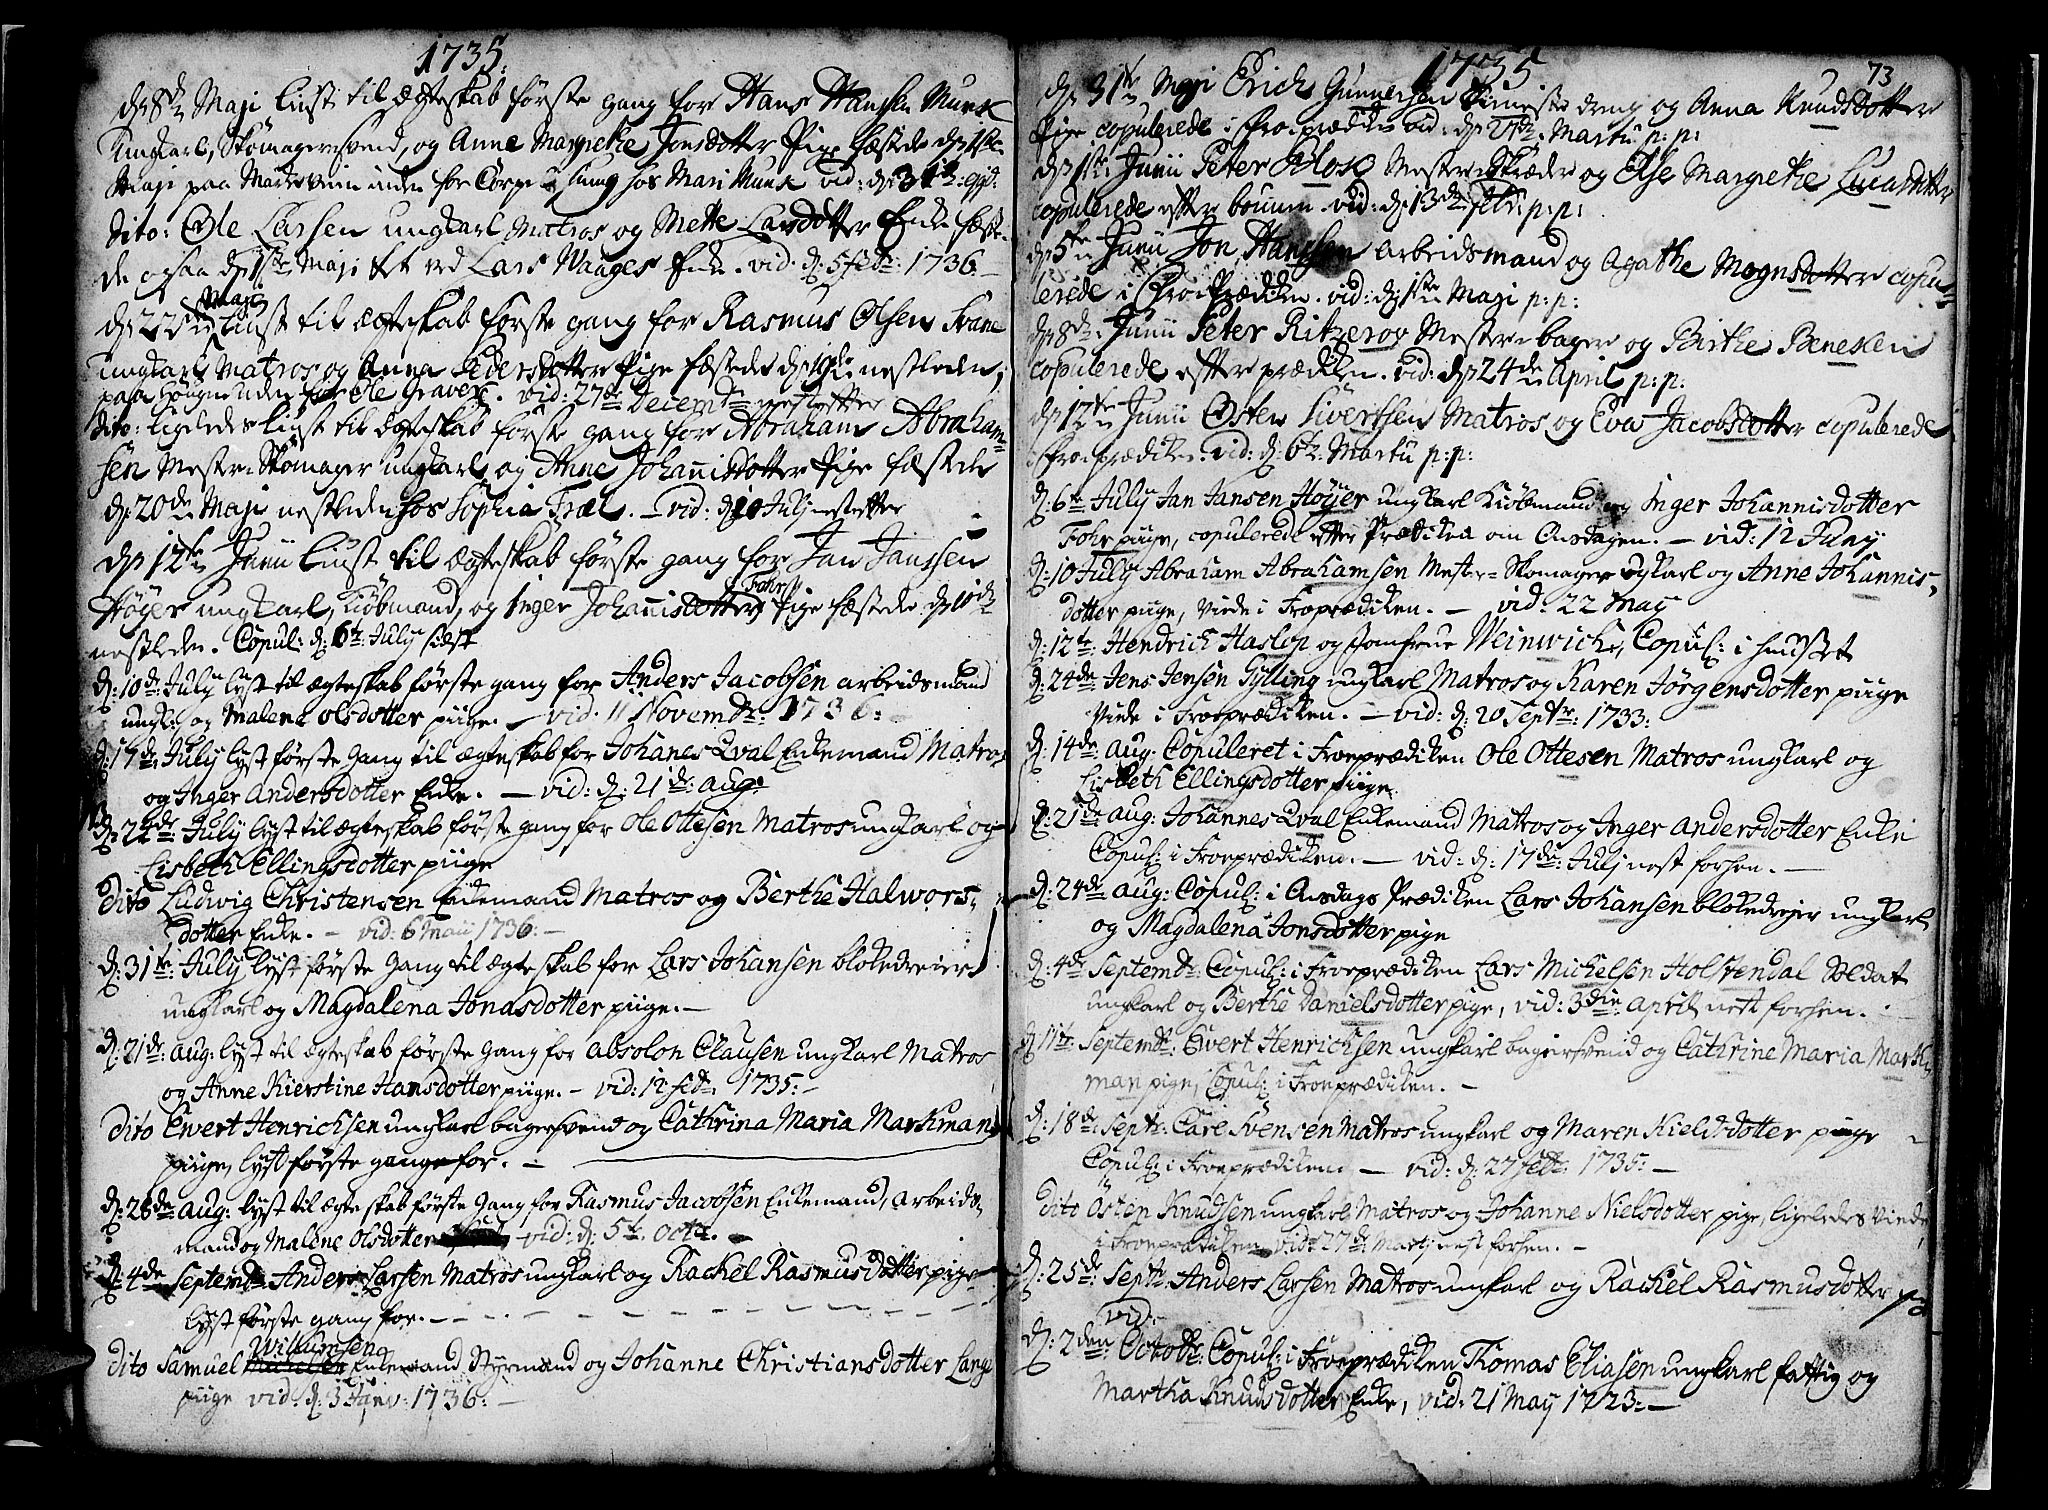 1735.
d. 8de Maji liust til ægteskab første gang for Hans Hansen Munk
Ungkarl, Skomagersvend, og Anne Margrethe Jonsdotter Pige fæstede d. 1ste
Maji paa Marksveien uden for hos Mari Munk vid: d: 31te
Dito: Ole Larsen ungkarl Matros og Mette Larsdotter Enke fæste-
de ogsaa d. 1ste Maji ved Lars Waages Enke. vid: d: 5 febr: 1736.
d. 22de Maji liust til ægteskab første gang for Rasmus Olsen Svane
ungkarl Matros og Anna Pedersdotter Pige fæstede d. 19de nestleden,
paa Hougen uden for Ole Gravers. vid: 27de Decembr nestefter
Dito: ligeledes liust til ægteskab første gang for Abraham Abraham-
sen Mester Skomager ungkarl og Anne Johannisdotter Pige fæstede
d. 20de Maji nestleden hos Sophia Træl. – vid: d: 10 Julj nestefter
den 12te Junii liust til ægteskab første gang for Jan Janssen
Høyer ungkarl, Kiøbmand, og Inger Johannisdotter Fohr Pige fæstede d. 10de
nestleden. Copul: d: 6te July sidst
d: 10de July lyst til ægteskab første gang for Anders Jacobsen arbeidsmand
ungk: og Malena Olsdotter piige. – vid: 11 Novembr: 1736:
d: 17de July lyst første gang til ægteskab for Johanes Qval Enkemand Matros
og Inger Andersdotter Enke. – vid: d: 21de: aug:
d: 24de: July lyst til ægteskab første gang for Ole Ottesen Matros ungkarl og
Lisbeth Ellingsdotter piige
Dito Ludwig Christensen Enkemand Matros og Berthe Halwors-
dotter Enke. – vid: 6 Maii 1736: –
d: 31te: July lyst første gang til ægteskab for Lars Johansen blokedreier
ungkarl og Magdalena Jonasdotter piige. –
d: 21de: aug: lyst til ægteskab første gang for Absolon Clausen ungkarl Matros
og Anne Kierstine Hansdotter piige. – vid: 12 febr: 1735: –
Dito Ewert Henrichsen ungkarl bagersvend og Cathrina Maria Markman
piige, lyst første gange for. –
d: 28de aug: lyst til ægteskab første gang for Rasmus Jacobsen Enkemand, Arbeids-
mand og Malene Olsdotter – vid: d: 5te octr. –
d: 4de Septembr Anders Larsen Matros ungkarl og Rachel Rasmusdotter pige
lyst første gang for. –
Dito Samuel Willumsen Enkemand Styrmand og Johanne Christiansdotter Lange
piige vid: d: 3 Janv: 1736: –
1735 73
d. 31te Maji Erich Gunnersen dreng og Anna Knudsdotter
Pige copulerede i froeprædiken vid: d: 27de Martii p: p:
d. 1ste Junii Peter Klos Mester Skræder og Else Margrethe Lucasdotter
copulerede efter bønnen. vid: d. 13de febr: p: p:
d. 5te Junii Jon Hanssen arbeidsmand og Agathe Mognsdotter copu-
lerede i froeprædiken. vid: d. 1ste Maji p: p:
d. 8de Junii Peter Ritzerov Mester bager og Birthe Benesen
copulerede efter prædiken. vid: d. 24de April p: p:
d. 12te Junii Østen Sivertsen Matros og Eva Jacobsdotter copulerede
i froeprædiken. vid: d: 6te Martii p: p:
d: 6te July Jan Jansen Høyer ungkarl Kiøbmand og Inger Johannisdotter
Fohr piige, copulerede efter Prædiken om Onsdagen. – vid: 12 Juny
d: 10 July Abraham Abrahamsen Mester-Skomager ungkarl og Anne Johannis-
dotter piige, Viede i Froprædiken. – vid: 22 May
d: 12te: Hendrich Haslop og Jomfrue Weinwich, Copul: i huuset
d: 24de Jens Jensen Gylling ungkarl Matros og Karen Jørgensdotter piige
Viede i Froeprædiken. – vid: d: 20 Septr: 1733:
d: 14de: aug: Copuleret i Froeprædiken Ole Ottesen Matros ungkarl og
Lisbeth Ellingsdotter piige.
d: 21de aug: Johannes Qval Enkemand Matros og Inger Andersdotter Enke
Copul: i Froeprædiken. – vid: d: 17de: Julj nest forhen. –
d: 24de aug: Copul: i Onsdags Prædiken Lars Johansen blokedreier ungkarl
og Magdalena Jonsdotter pige
d: 4de Septembr: Copul: i Froeprædiken Lars Michelsen Holstendal Soldat
ungkarl og Berthe Danielsdotter pige, vid: 3die april nest forhen.
d: 11te Septembr: Ewert Henrichsen ungkarl bagersvend og Cathrine Maria Mark-
man pige, Copul: i Froeprædiken. –
d: 18de: Septr: Carl Svensen Matros ungkarl og Maren Kieldsdotter piige
Copul: i Froeprædiken – vid: d: 27 febr: 1735: –
Dito Østen Knudsen ungkarl Matros og Johanne Nielsdotter pige, ligeledes Viede
i Froeprædiken vid: 27de Martj nest forhen. –
d: 25de: Septr: Anders Larsen Matros ungkarl og Rachel Rasmusdotter
vid:
d: 2den: Octobr: Copul: i Froeprædiken Thomas Eliasen ungkarl fattig og
Martha Knudsdotter Enke, vid: 21 May 1723: –